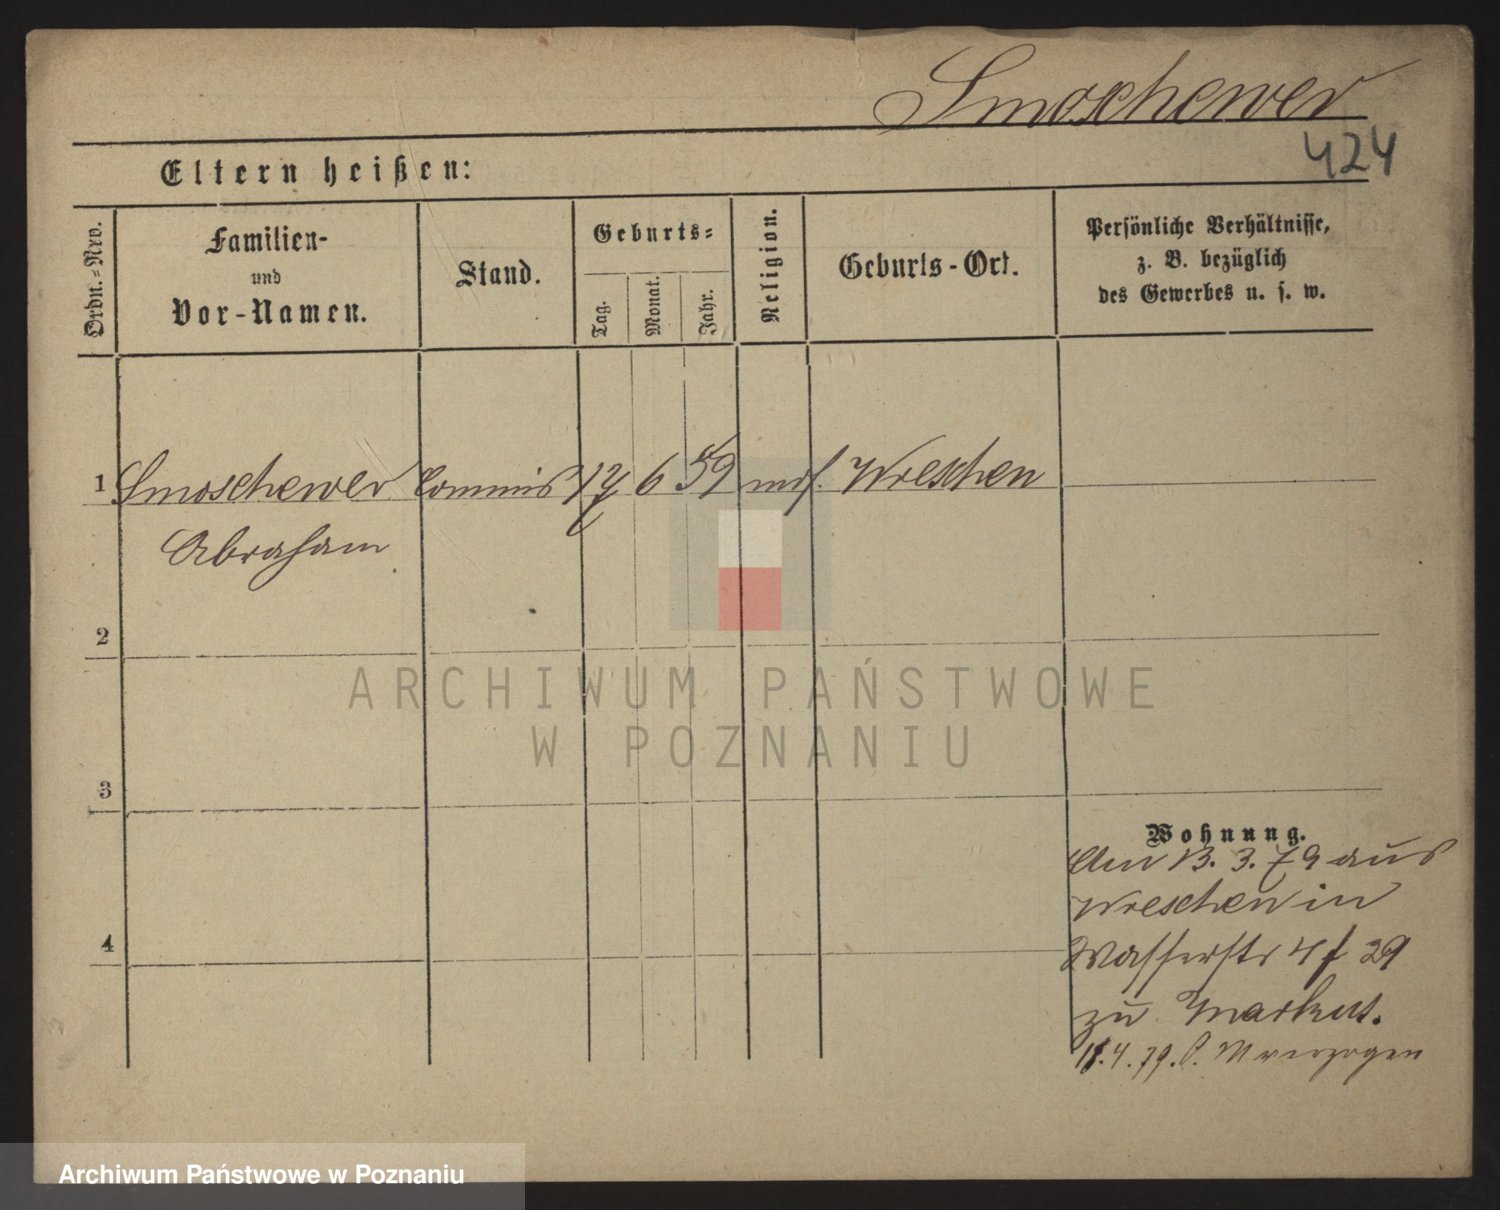 Smoschewer
424
Eltern heißen:
Ordn.=Nro.
Familien-
und
Vor-Namen.
Stand.
Geburts=
Tag.
Monat.
Jahr.
Religion.
Geburts-Ort.
Persönliche Verhältnisse,
z. B. bezüglich
des Gewerbes u. s. w.
1 Smoschewer Commis 17 6 59 mos. Wreschen
Abraham
2
3
4
Wohnung.
Am 13. 3. 79 aus
Wreschen in
Wasserstr 4 f 29
zu Markus.
18.4.79. verzogen
ARCHIWUM PAŃSTWOWE
W POZNANIU
Archiwum Państwowe w Poznaniu